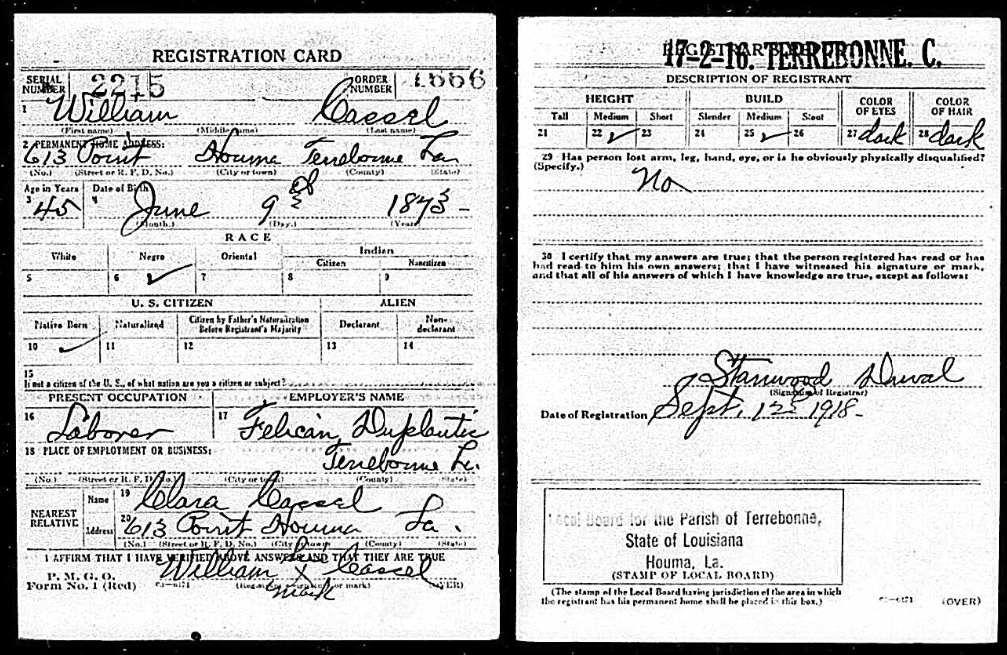 REGISTRATION CARD
SERIAL NUMBER 2215 ORDER NUMBER 1666
1 William Cassel
(First name) (Middle name) (Last name)
2 PERMANENT HOME ADDRESS:
613 Point Houma Terrebonne La
(No.) (Street or R. F. D. No.) (City or town) (County) (State)
Age in Years Date of Birth
3 45 4 June 9th 1873-
(Month.) (Day.) (Year.)
RACE
White Negro Oriental Indian
Citizen Noncitizen
5 6 ✓ 7 8 9
U. S. CITIZEN ALIEN
Native Born Naturalized Citizen by Father's Naturalization Before Registrant's Majority Declarant Non-declarant
10 ✓ 11 12 13 14
15
If not a citizen of the U. S., of what nation are you a citizen or subject?
PRESENT OCCUPATION EMPLOYER'S NAME
16 Laborer 17 Felican Duplantis
18 PLACE OF EMPLOYMENT OR BUSINESS:
Terrebonne La.
(No.) (Street or R. F. D. No.) (City or town) (County) (State)
NEAREST RELATIVE Name 19 Clara Cassel
Address 20 613 Point Houma La.
(No.) (Street or R. F. D. No.) (City or town) (County) (State)
I AFFIRM THAT I HAVE VERIFIED ABOVE ANSWERS AND THAT THEY ARE TRUE
his
William X Cassel
mark
P. M. G. O.
Form No. 1 (Red) (Registrant's signature or mark) (OVER)
REGISTRAR'S REPORT
17-2-16. TERREBONNE. C.
DESCRIPTION OF REGISTRANT
HEIGHT BUILD COLOR OF EYES COLOR OF HAIR
Tall Medium Short Slender Medium Stout
21 22 ✓ 23 24 25 ✓ 26 27 dark 28 dark
29 Has person lost arm, leg, hand, eye, or is he obviously physically disqualified?
(Specify.) No
30 I certify that my answers are true; that the person registered has read or has
had read to him his own answers; that I have witnessed his signature or mark,
and that all of his answers of which I have knowledge are true, except as follows:
Stanwood Duval
(Signature of Registrar)
Date of Registration Sept. 12 1918-
Local Board for the Parish of Terrebonne,
State of Louisiana
Houma, La.
(STAMP OF LOCAL BOARD)
(The stamp of the Local Board having jurisdiction of the area in which
the registrant has his permanent home shall be placed in this box.)
(OVER)